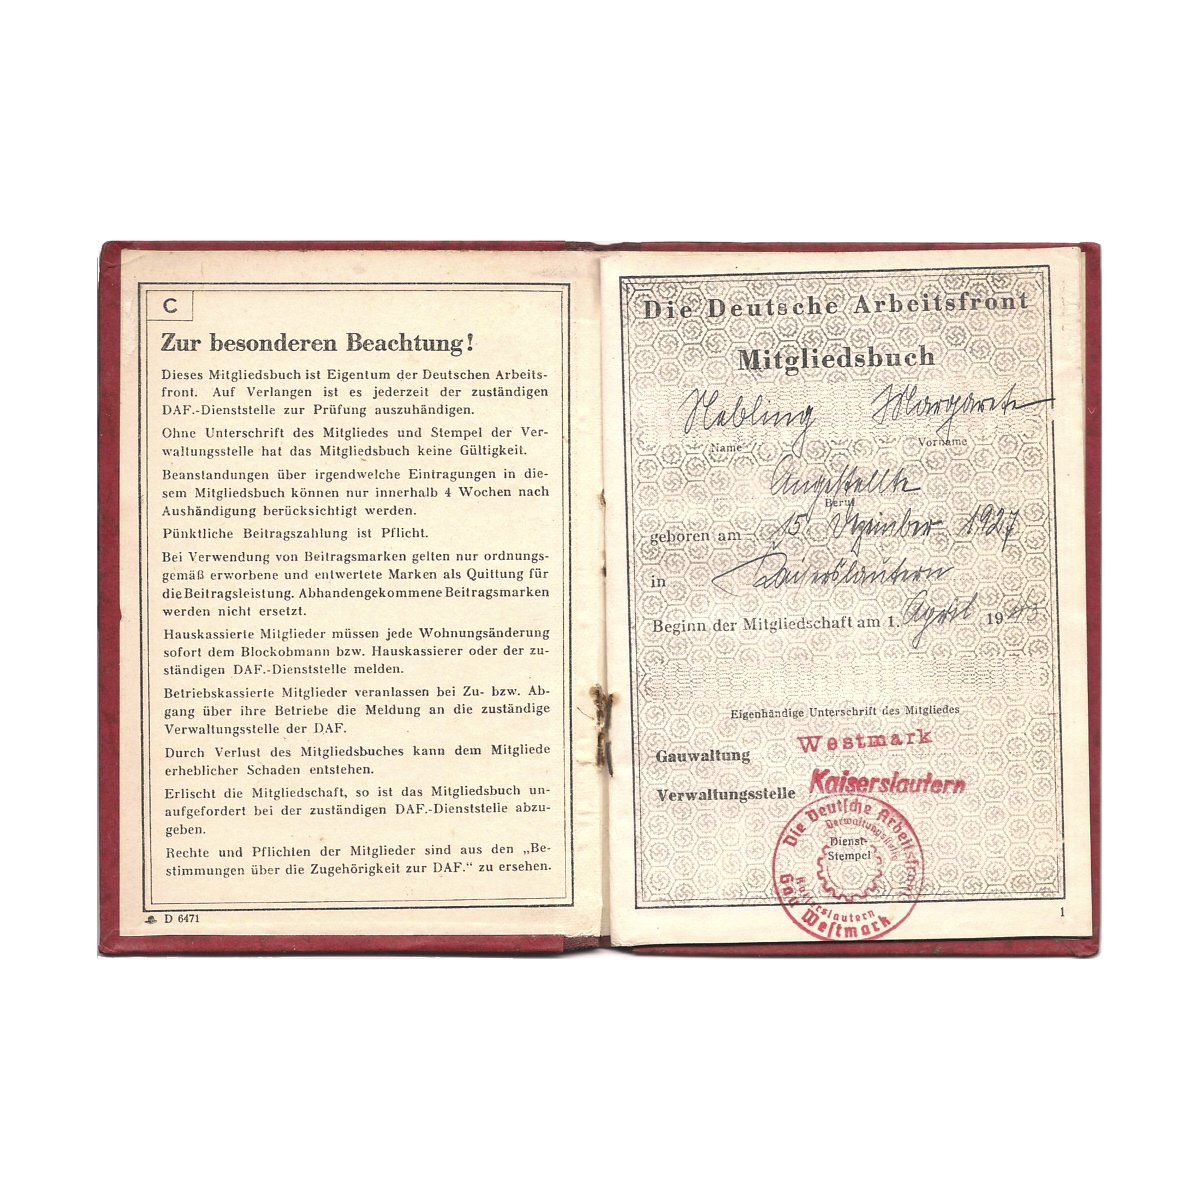 C
Zur besonderen Beachtung!
Dieses Mitgliedsbuch ist Eigentum der Deutschen Arbeits-
front. Auf Verlangen ist es jederzeit der zuständigen
DAF.-Dienststelle zur Prüfung auszuhändigen.
Ohne Unterschrift des Mitgliedes und Stempel der Ver-
waltungsstelle hat das Mitgliedsbuch keine Gültigkeit.
Beanstandungen über irgendwelche Eintragungen in die-
sem Mitgliedsbuch können nur innerhalb 4 Wochen nach
Aushändigung berücksichtigt werden.
Pünktliche Beitragszahlung ist Pflicht.
Bei Verwendung von Beitragsmarken gelten nur ordnungs-
gemäß erworbene und entwertete Marken als Quittung für
die Beitragsleistung. Abhandengekommene Beitragsmarken
werden nicht ersetzt.
Hauskassierte Mitglieder müssen jede Wohnungsänderung
sofort dem Blockobmann bzw. Hauskassierer oder der zu-
ständigen DAF.-Dienststelle melden.
Betriebskassierte Mitglieder veranlassen bei Zu- bzw. Ab-
gang über ihre Betriebe die Meldung an die zuständige
Verwaltungsstelle der DAF.
Durch Verlust des Mitgliedsbuches kann dem Mitgliede
erheblicher Schaden entstehen.
Erlischt die Mitgliedschaft, so ist das Mitgliedsbuch un-
aufgefordert bei der zuständigen DAF.-Dienststelle abzu-
geben.
Rechte und Pflichten der Mitglieder sind aus den „Be-
stimmungen über die Zugehörigkeit zur DAF.“ zu ersehen.
D 6471
Die Deutsche Arbeitsfront
Mitgliedsbuch
Nebling Margarete
Name Vorname
Angestellte
Beruf
geboren am 15 Dezember 1927
in Kaiserslautern
Beginn der Mitgliedschaft am 1. April 19
Eigenhändige Unterschrift des Mitgliedes
Gauwaltung Westmark
Verwaltungsstelle Kaiserslautern
Die Deutsche Arbeitsfront
Verwaltungsstelle
Dienst-
Stempel
Kaiserslautern
Gau Westmark
1